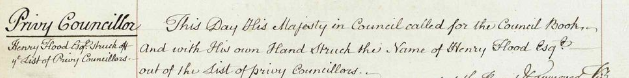 Privy Councillor
Henry Flood Esqr. Struck off
ye List of Privy Councillors.
This Day His Majesty in Council called for the Council Book,
And with His own Hand Struck the Name of Henry Flood Esqr.
out of the List of privy Councillors.